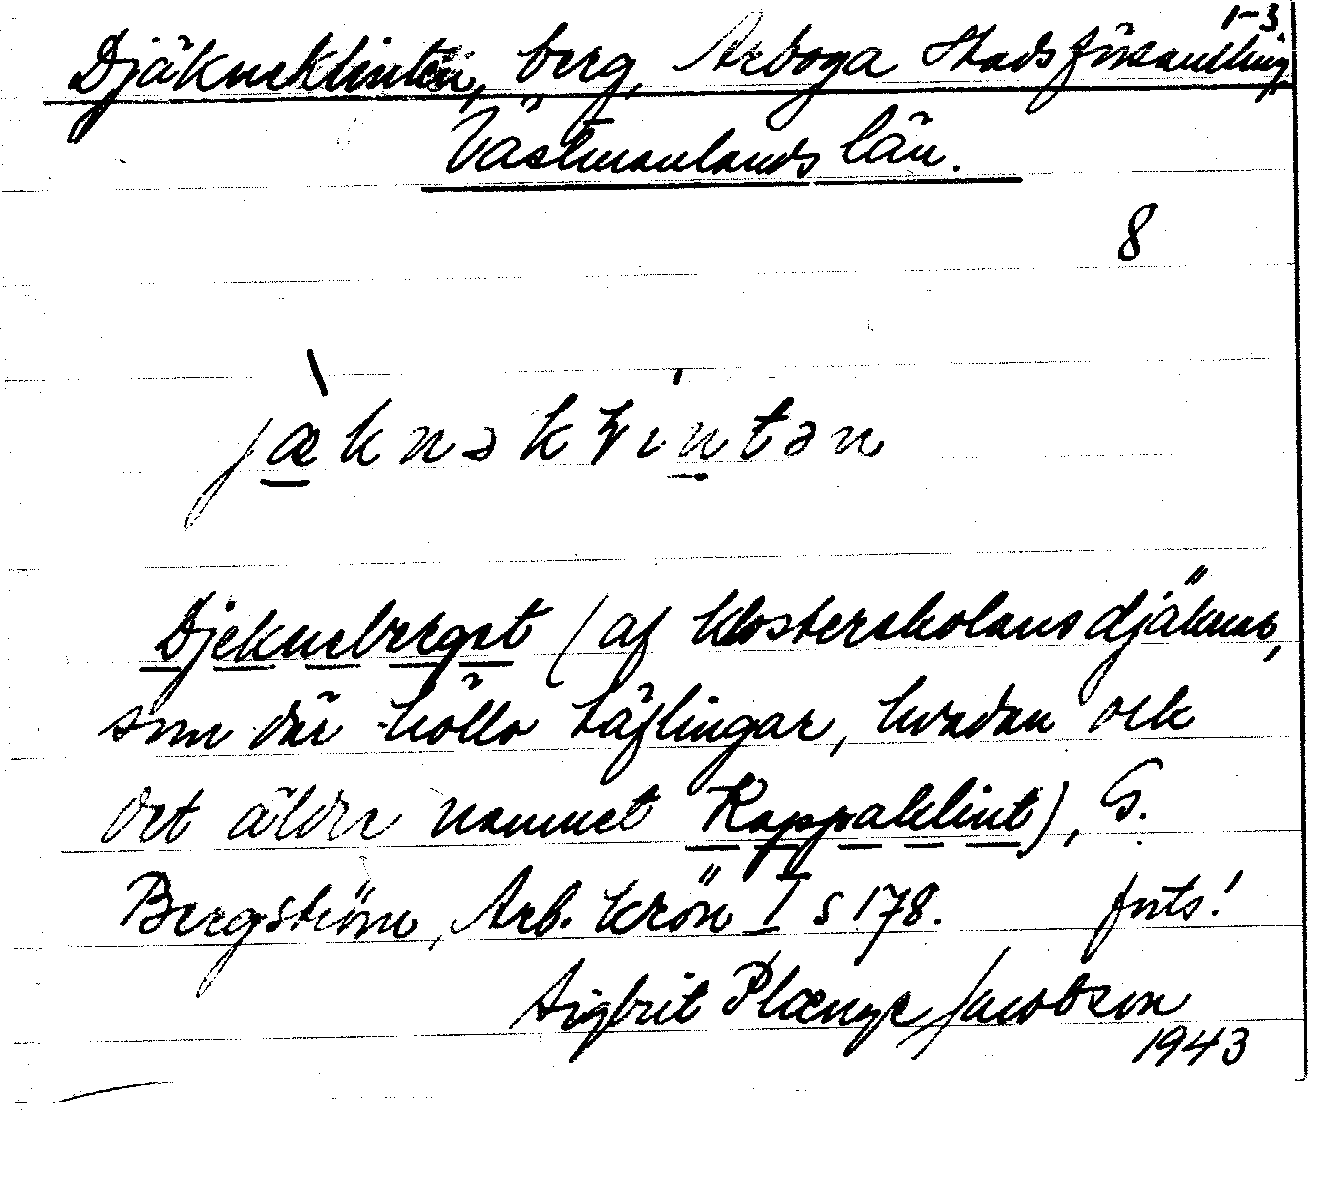 1-3
Djäkneklinten, berg, Arboga Stadsförsamling
Västmanlands län.
8
jæ̀knəkḷintən
Djekneberget (af klosterskolans djäknar,
som där höllo täflingar, hvadan ock
det äldre namnet Kappaklint), G.
Bergström, Arb. krön I s 178. forts!
Sigbrit Plænge Jacobson
1943